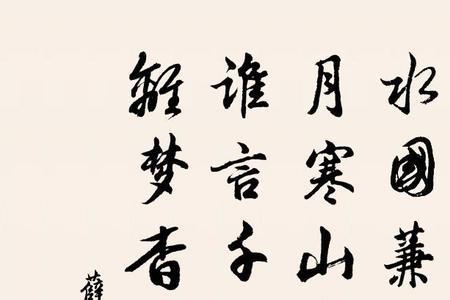 水國蒹
月寒山
谁言千
離梦杳
薛